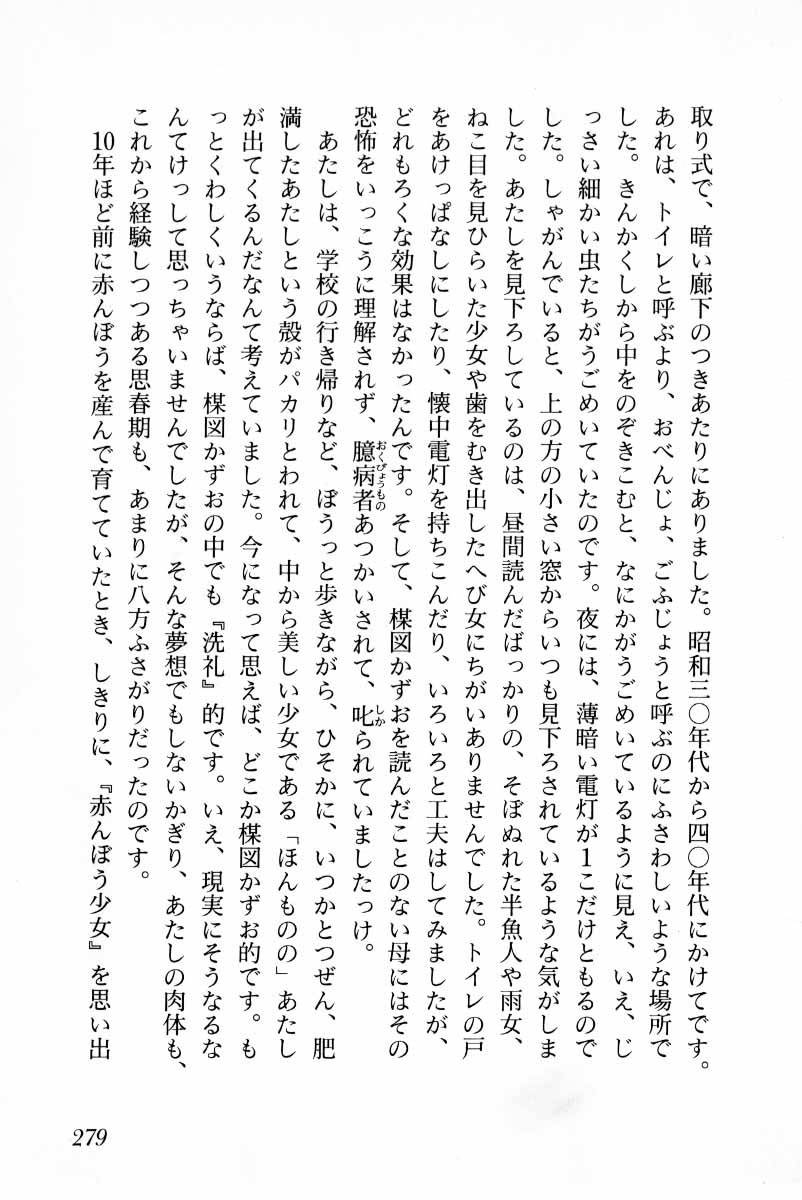 取り式で、暗い廊下のつきあたりにありました。昭和三〇年代から四〇年代にかけてです。
あれは、トイレと呼ぶより、おべんじょ、ごふじょうと呼ぶのにふさわしいような場所で
した。きんかくしから中をのぞきこむと、なにかがうごめいているように見え、いえ、じ
っさい細かい虫たちがうごめいていたのです。夜には、薄暗い電灯が１こだけともるので
した。しゃがんでいると、上の方の小さい窓からいつも見下ろされているような気がしま
した。あたしを見下ろしているのは、昼間読んだばっかりの、そぼぬれた半魚人や雨女、
ねこ目を見ひらいた少女や歯をむき出したへび女にちがいありませんでした。トイレの戸
をあけっぱなしにしたり、懐中電灯を持ちこんだり、いろいろと工夫はしてみましたが、
どれもろくな効果はなかったんです。そして、楳図かずおを読んだことのない母にはその
恐怖をいっこうに理解されず、臆病者おくびょうものあつかいされて、叱しかられていましたっけ。
あたしは、学校の行き帰りなど、ぼうっと歩きながら、ひそかに、いつかとつぜん、肥
満したあたしという殻がパカリとわれて、中から美しい少女である「ほんものの」あたし
が出てくるんだなんて考えていました。今になって思えば、どこか楳図かずお的です。も
っとくわしくいうならば、楳図かずおの中でも『洗礼』的です。いえ、現実にそうなるな
んてけっして思っちゃいませんでしたが、そんな夢想でもしないかぎり、あたしの肉体も、
これから経験しつつある思春期も、あまりに八方ふさがりだったのです。
10年ほど前に赤んぼうを産んで育てていたとき、しきりに、『赤んぼう少女』を思い出
279